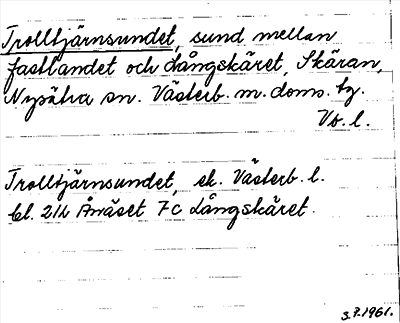 Trolltjärnsundet, sund mellan
fastlandet och Långskäret, Skäran,
Nysätra sn. Västerb. m. doms. tg.
Vb. l.
Trolltjärnsundet, ek. Västerb. l.
bl. 21L Ånäset 7c Långskäret.
3.7.1961.